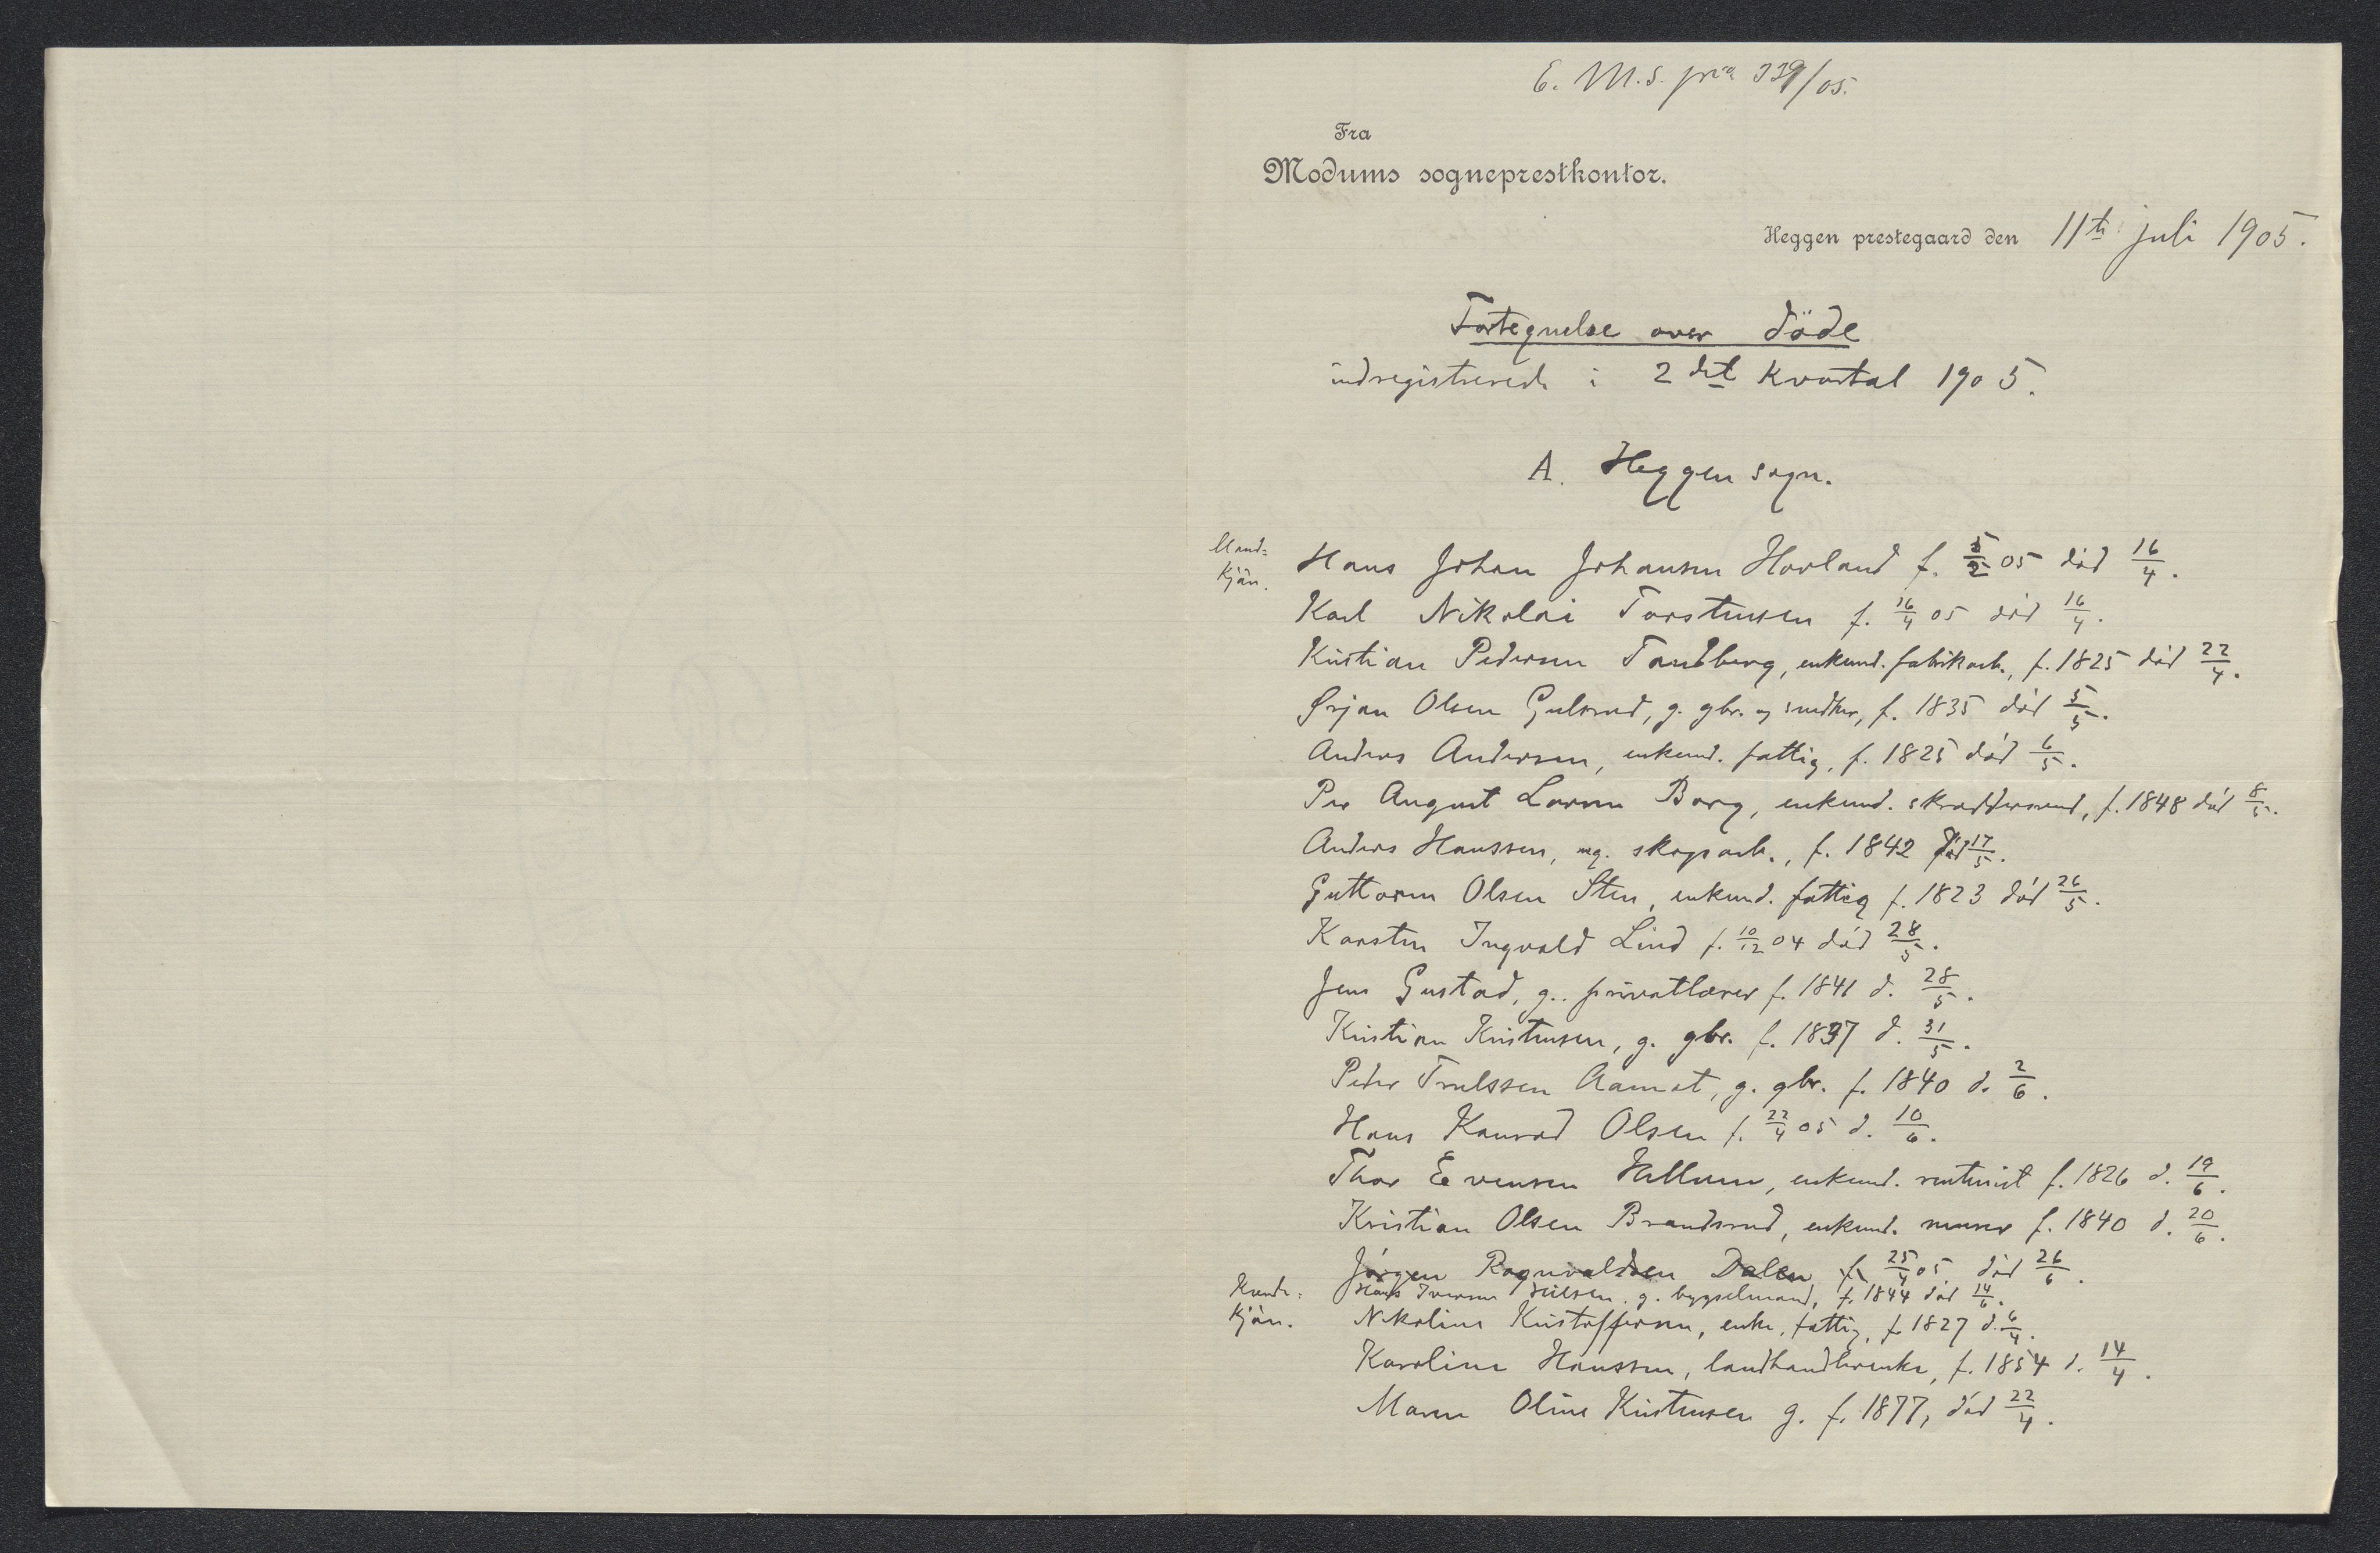 E. M. S. pra 339/05.
Fra
Modums sogneprestkontor.
Heggen prestegaard den 11te juli 1905.
Fortegnelse over döde
indregistrerede i 2det kvartal 1905.
A. Heggen sogn.
Mand=
kjön.
Hans Johan Johansen Hovland f. 5/2 05 död 16/4.
Karl Nikolai Torstensen f. 16/4 05 död 16/4.
Kristian Pedersen Tandberg, enkemd. fabrikarb., f. 1825 död 22/4.
Ørjan Olsen Gulsrud, g. gbr. og snedker, f. 1835 död 5/5.
Anders Andersen, enkemd. fattig, f. 1825 död 6/5.
Per August Larsen Borg, enkemd. skreddersvend, f. 1848 död 8/5.
Anders Hanssen, ug. skogsarb., f. 1842 död 17/5.
Guttorm Olsen Sten, enkemd. fattig f. 1823 död 26/5.
Karsten Ingvald Lind f. 10/12 04 död 28/5.
Jens Gustad, g. privatlærer f. 1841 d. 28/5.
Kristian Kristensen, g. gbr. f. 1837 d. 31/5.
Peder Trulssen Aamot, g. gbr. f. 1840 d. 2/6.
Hans Konrad Olsen f. 22/4 05 d. 10/6.
Thor Evensen Hallum, enkemd. rentenist f. 1826 d. 19/6.
Kristian Olsen Brandsrud, enkemd. murer f. 1840 d. 20/6.
Jörgen Rognvaldsen Dalen f. 25/4 05 död 26/6.
Hans Iversen g. bygselmand, f. 1844 död 14/6.
Kvinde=
kjön.
Nikoline Kristoffersen, enke, fattig, f. 1827 d. 6/4.
Karoline Hanssen, landhandlerenke, f. 1854 d. 14/4.
Maren Oline Kristensen g. f. 1877, död 22/4.